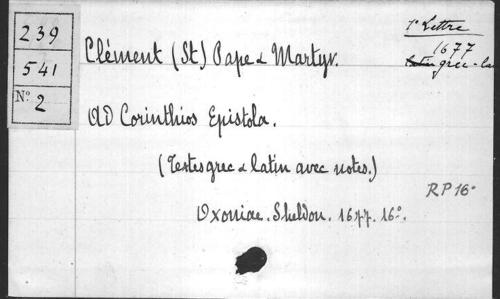 239
541
N° 2
1e Lettre
1677
latin grec-la
Clément (St) Pape & Martyr.
AD Corinthios Epistola.
(Textes grec & latin avec notes.)
RP 16°
Oxoniae. Sheldon. 1677. 16°.